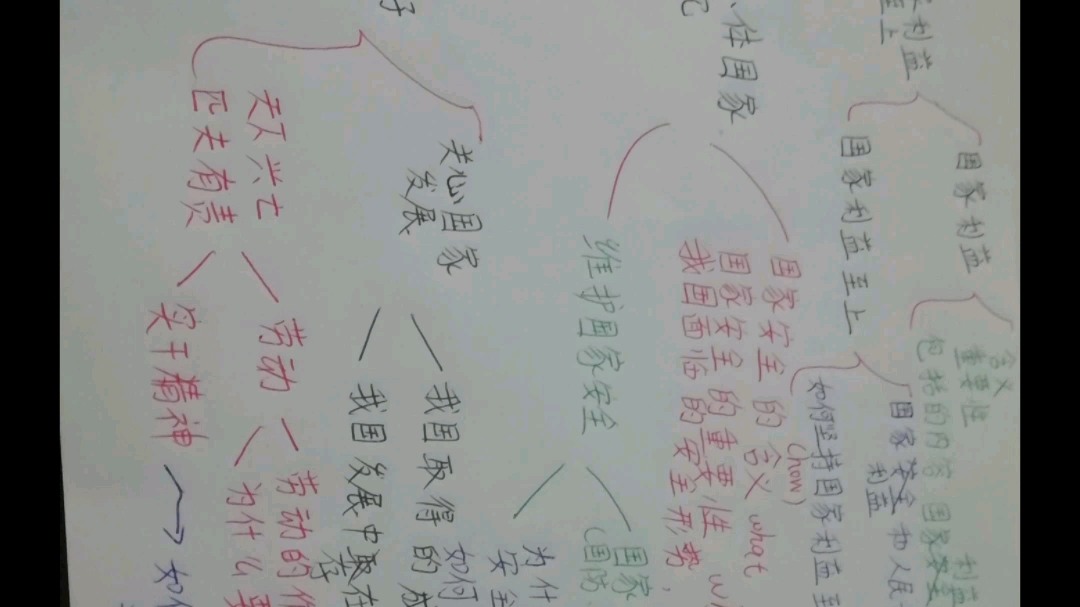 家利益
至上
国家利益
含义
重要性
包括的内容
国家利益至上
国家安全和人民
利益
如何坚持国家利益至
(how)
体国家
国家安全的含义 what
国家安全的重要性
我国面临的安全形势
维护国家安全
国家
(国防
为什
安全
如何
关心国家
发展
我国取得的成
我国发展中存在
天下兴亡
匹夫有责
劳动
劳动的作
为什么要
实干精神
如何